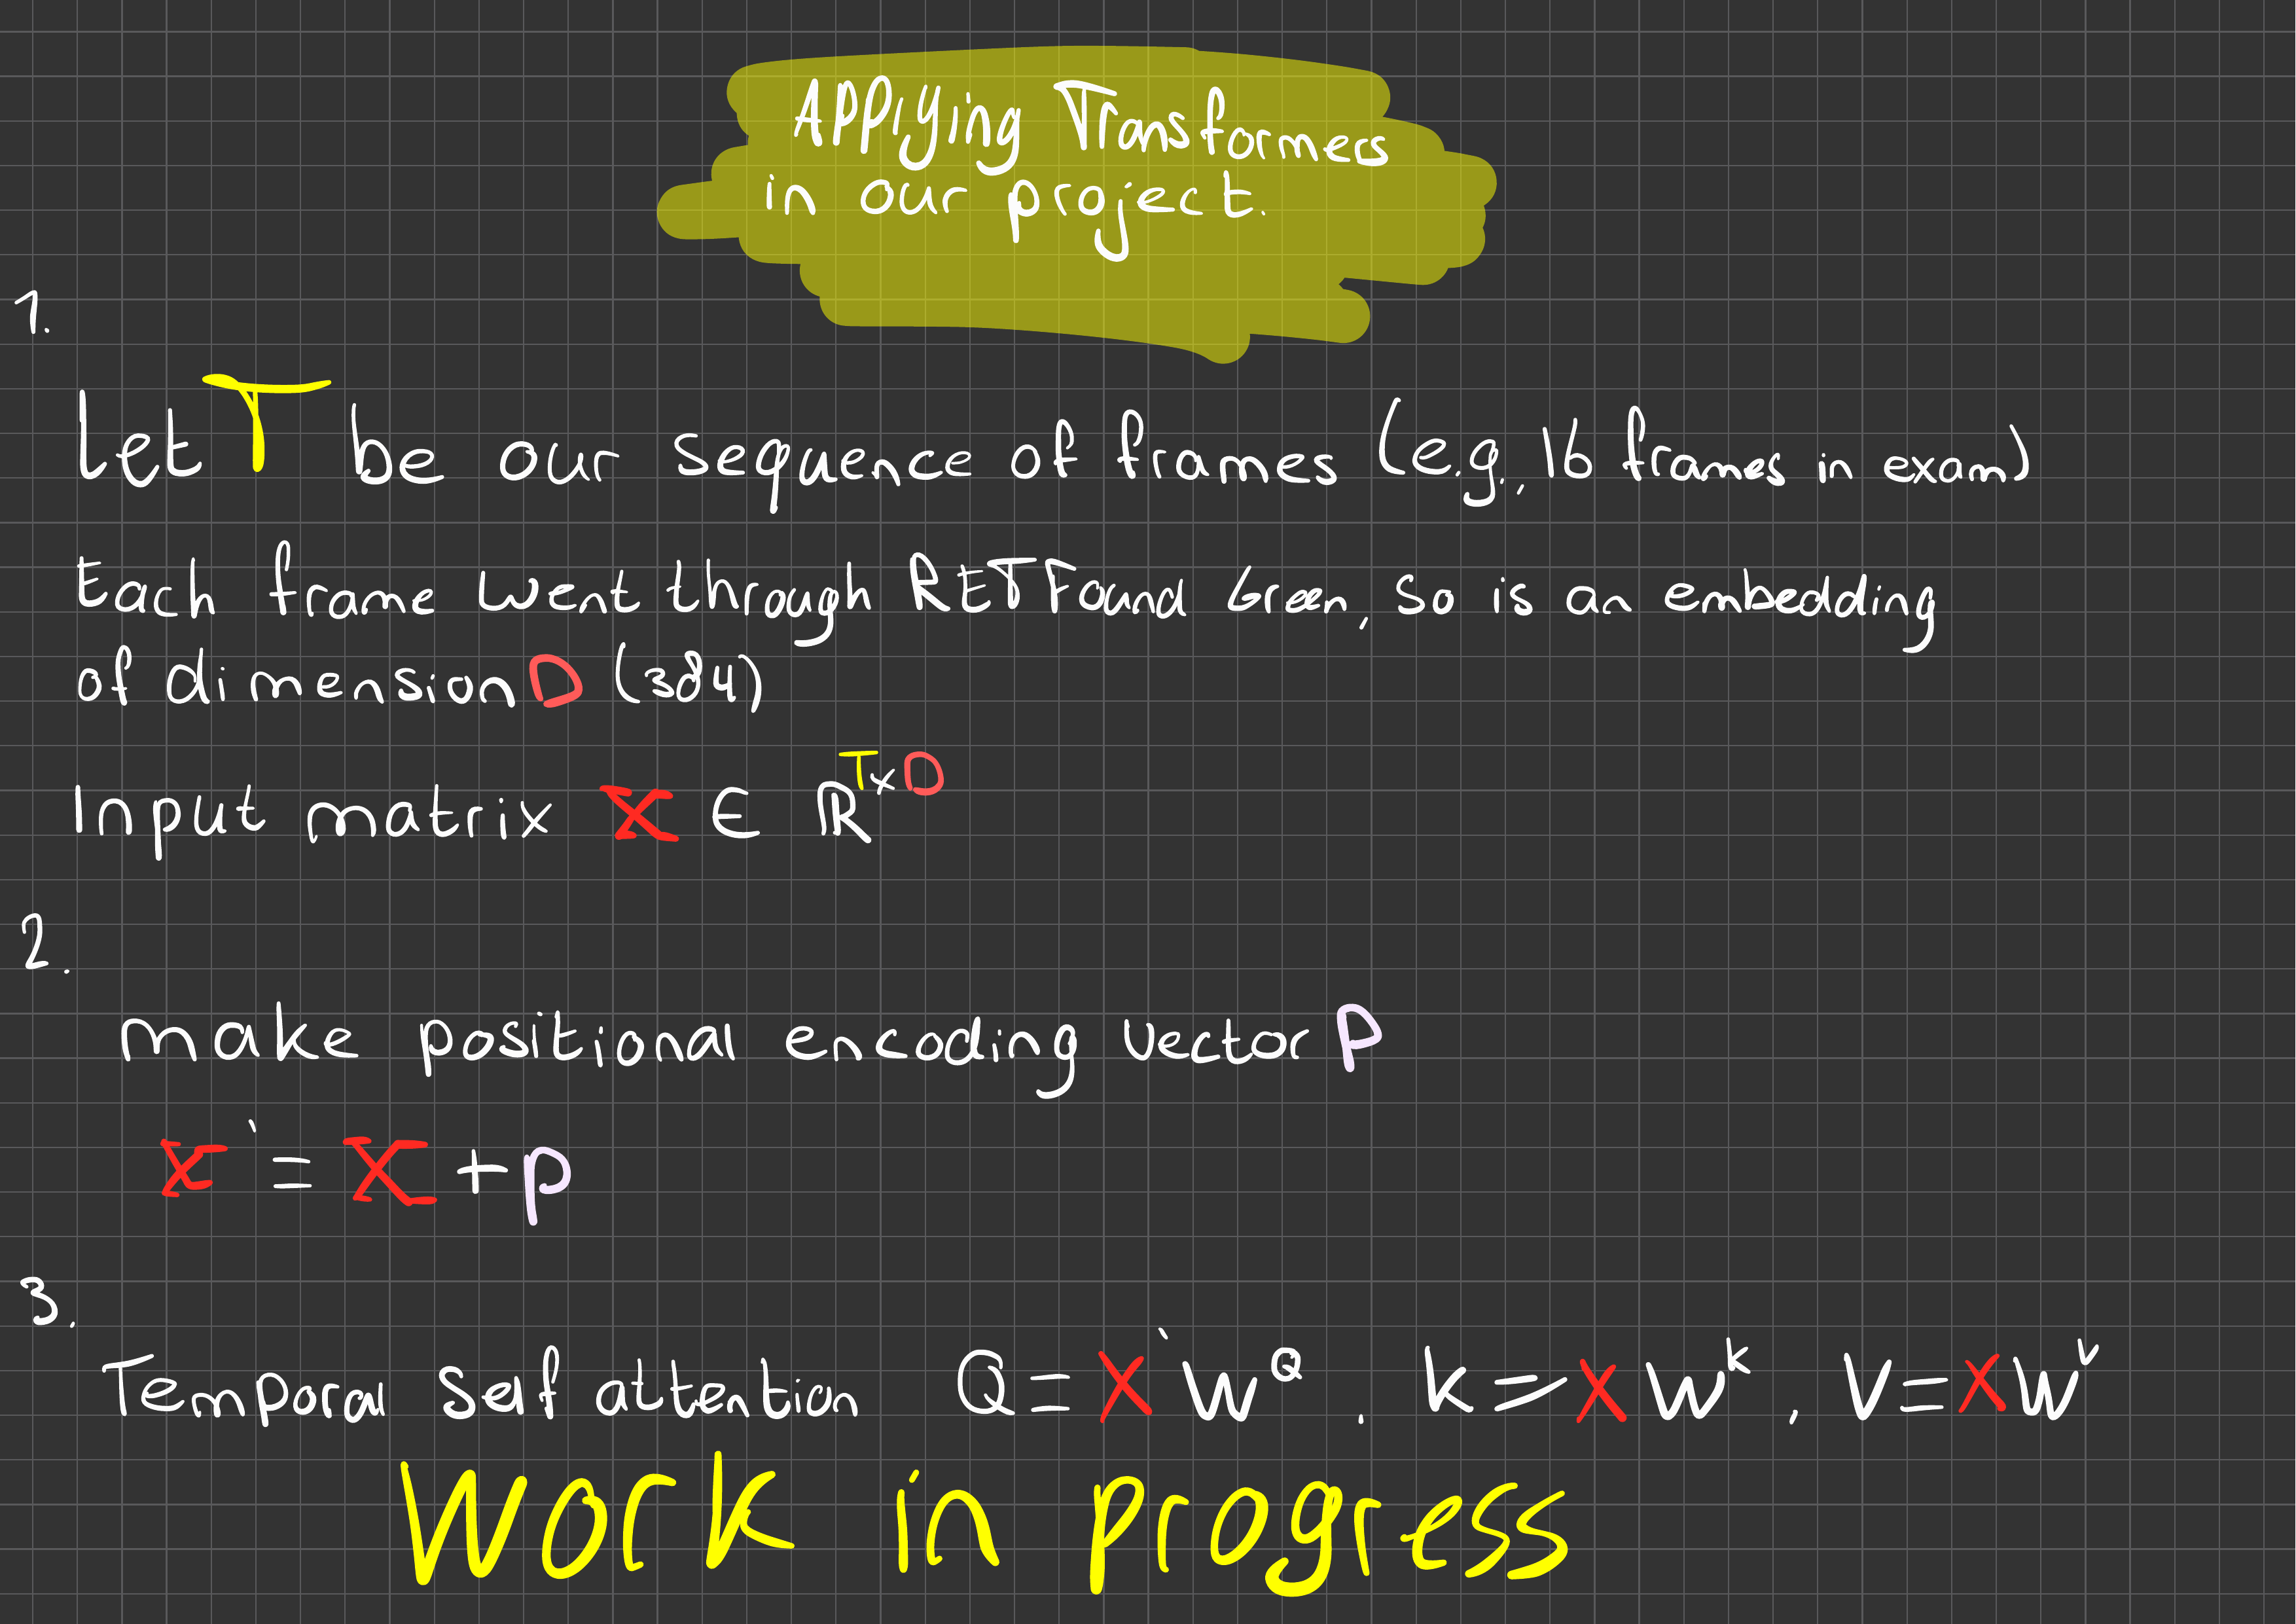 Applying Transformers
in our project.
1.
Let T be our sequence of frames (e.g., 16 frames in exam)
Each frame went through RETFound Green, so is an embedding
of dimension D (384)
Input matrix X ∈ ℝ^T×D
2.
make positional encoding vector P
X' = X + P
3.
Temporal Self attention Q = X' W^Q, K = X W^K, V = X W^V
Work in progress